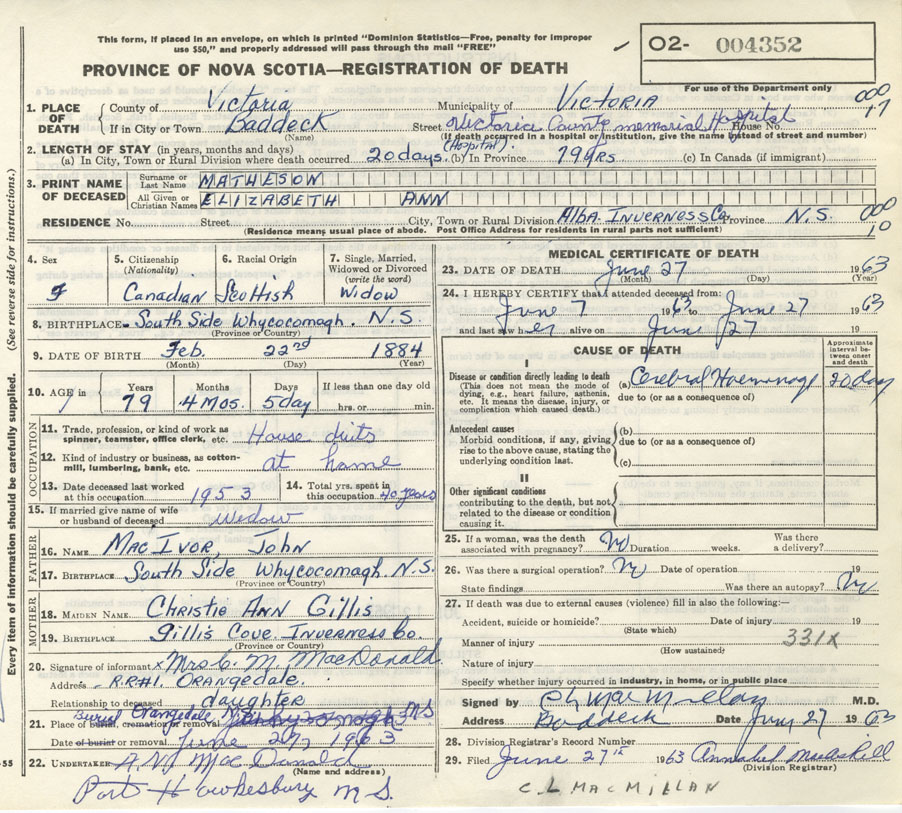 This form, if placed in an envelope, on which is printed "Dominion Statistics—Free, penalty for improper
use $50," and properly addressed will pass through the mail "FREE"
O2- 004352
For use of the Department only
PROVINCE OF NOVA SCOTIA—REGISTRATION OF DEATH
000
17
1. PLACE OF DEATH County of Victoria Municipality of VICTORIA
If in City or Town Baddeck Street Victoria County memorial Hospital House No.
(Name) (If death occurred in a hospital or institution, give the name instead of street and number)
2. LENGTH OF STAY (in years, months and days) (Hospital).
(a) In City, Town or Rural Division where death occurred 20 days. (b) In Province 79 yrs. (c) In Canada (if immigrant)
3. PRINT NAME OF DECEASED Surname or Last Name MATHESON
All Given or Christian Names ELIZABETH ANN
RESIDENCE No. Street City, Town or Rural Division Alba. INVERNESS Co. Province N.S.
(Residence means usual place of abode. Post Office Address for residents in rural parts not sufficient)
000
10
(See reverse side for instructions.)
Every item of information should be carefully supplied.
-55
4. Sex 5. Citizenship (Nationality) 6. Racial Origin 7. Single, Married, Widowed or Divorced (write the word)
F Canadian Scottish Widow
8. BIRTHPLACE South Side Whycocomagh. N.S.
(Province or Country)
9. DATE OF BIRTH Feb. 22nd 1884
(Month) (Day) (Year)
10. AGE in Years Months Days If less than one day old
79 4 mos. 5 day hrs. or min.
OCCUPATION
11. Trade, profession, or kind of work as
spinner, teamster, office clerk, etc. House duits
12. Kind of industry or business, as cotton-
mill, lumbering, bank, etc. at home
13. Date deceased last worked at this occupation 1953 14. Total yrs. spent in this occupation 40 years
15. If married give name of wife
or husband of deceased Widow
FATHER
16. NAME MacIvor, John
17. BIRTHPLACE South Side Whycocomagh. N.S.
(Province or Country)
MOTHER
18. MAIDEN NAME Christie Ann Gillis
19. BIRTHPLACE Gillis Cove Inverness Co.
(Province or Country)
20. Signature of informant x Mrs C. M. MacDonald
Address R.R#1. Orangedale.
Relationship to deceased daughter
Burial Orangedale N.S
21. Place of burial, cremation or removal
Date of burial or removal June 27, 1963
22. UNDERTAKER MacDonald
(Name and address)
Port Hawkesbury N.S.
MEDICAL CERTIFICATE OF DEATH
23. DATE OF DEATH June 27 1963
(Month) (Day) (Year)
24. I HEREBY CERTIFY that I attended deceased from:
June 7 1963 to June 27 1963
and last saw her alive on June 27 19
CAUSE OF DEATH
Approximate interval between onset and death
I
Disease or condition directly leading to death
(This does not mean the mode of
dying, e.g., heart failure, asthenia,
etc. It means the disease, injury, or
complication which caused death.)
(a) Cerebral Haemorrhage 20 day
due to (or as a consequence of)
Antecedent causes
Morbid conditions, if any, giving
rise to the above cause, stating the
underlying condition last.
(b)
due to (or as a consequence of)
(c)
II
Other significant conditions
contributing to the death, but not
related to the disease or condition
causing it.
25. If a woman, was the death associated with pregnancy? No Duration weeks. Was there a delivery?
26. Was there a surgical operation? No Date of operation 19
State findings Was there an autopsy? No
27. If death was due to external causes (violence) fill in also the following:—
Accident, suicide or homicide? Date of injury 19
(State which)
Manner of injury 331X
(How sustained)
Nature of injury
Specify whether injury occurred in industry, in home, or in public place
Signed by C L MacMillan M.D.
Address Baddeck Date June 27 1963
28. Division Registrar's Record Number
29. Filed June 27th 1963 Annabel
(Division Registrar)
C. L MACMILLAN